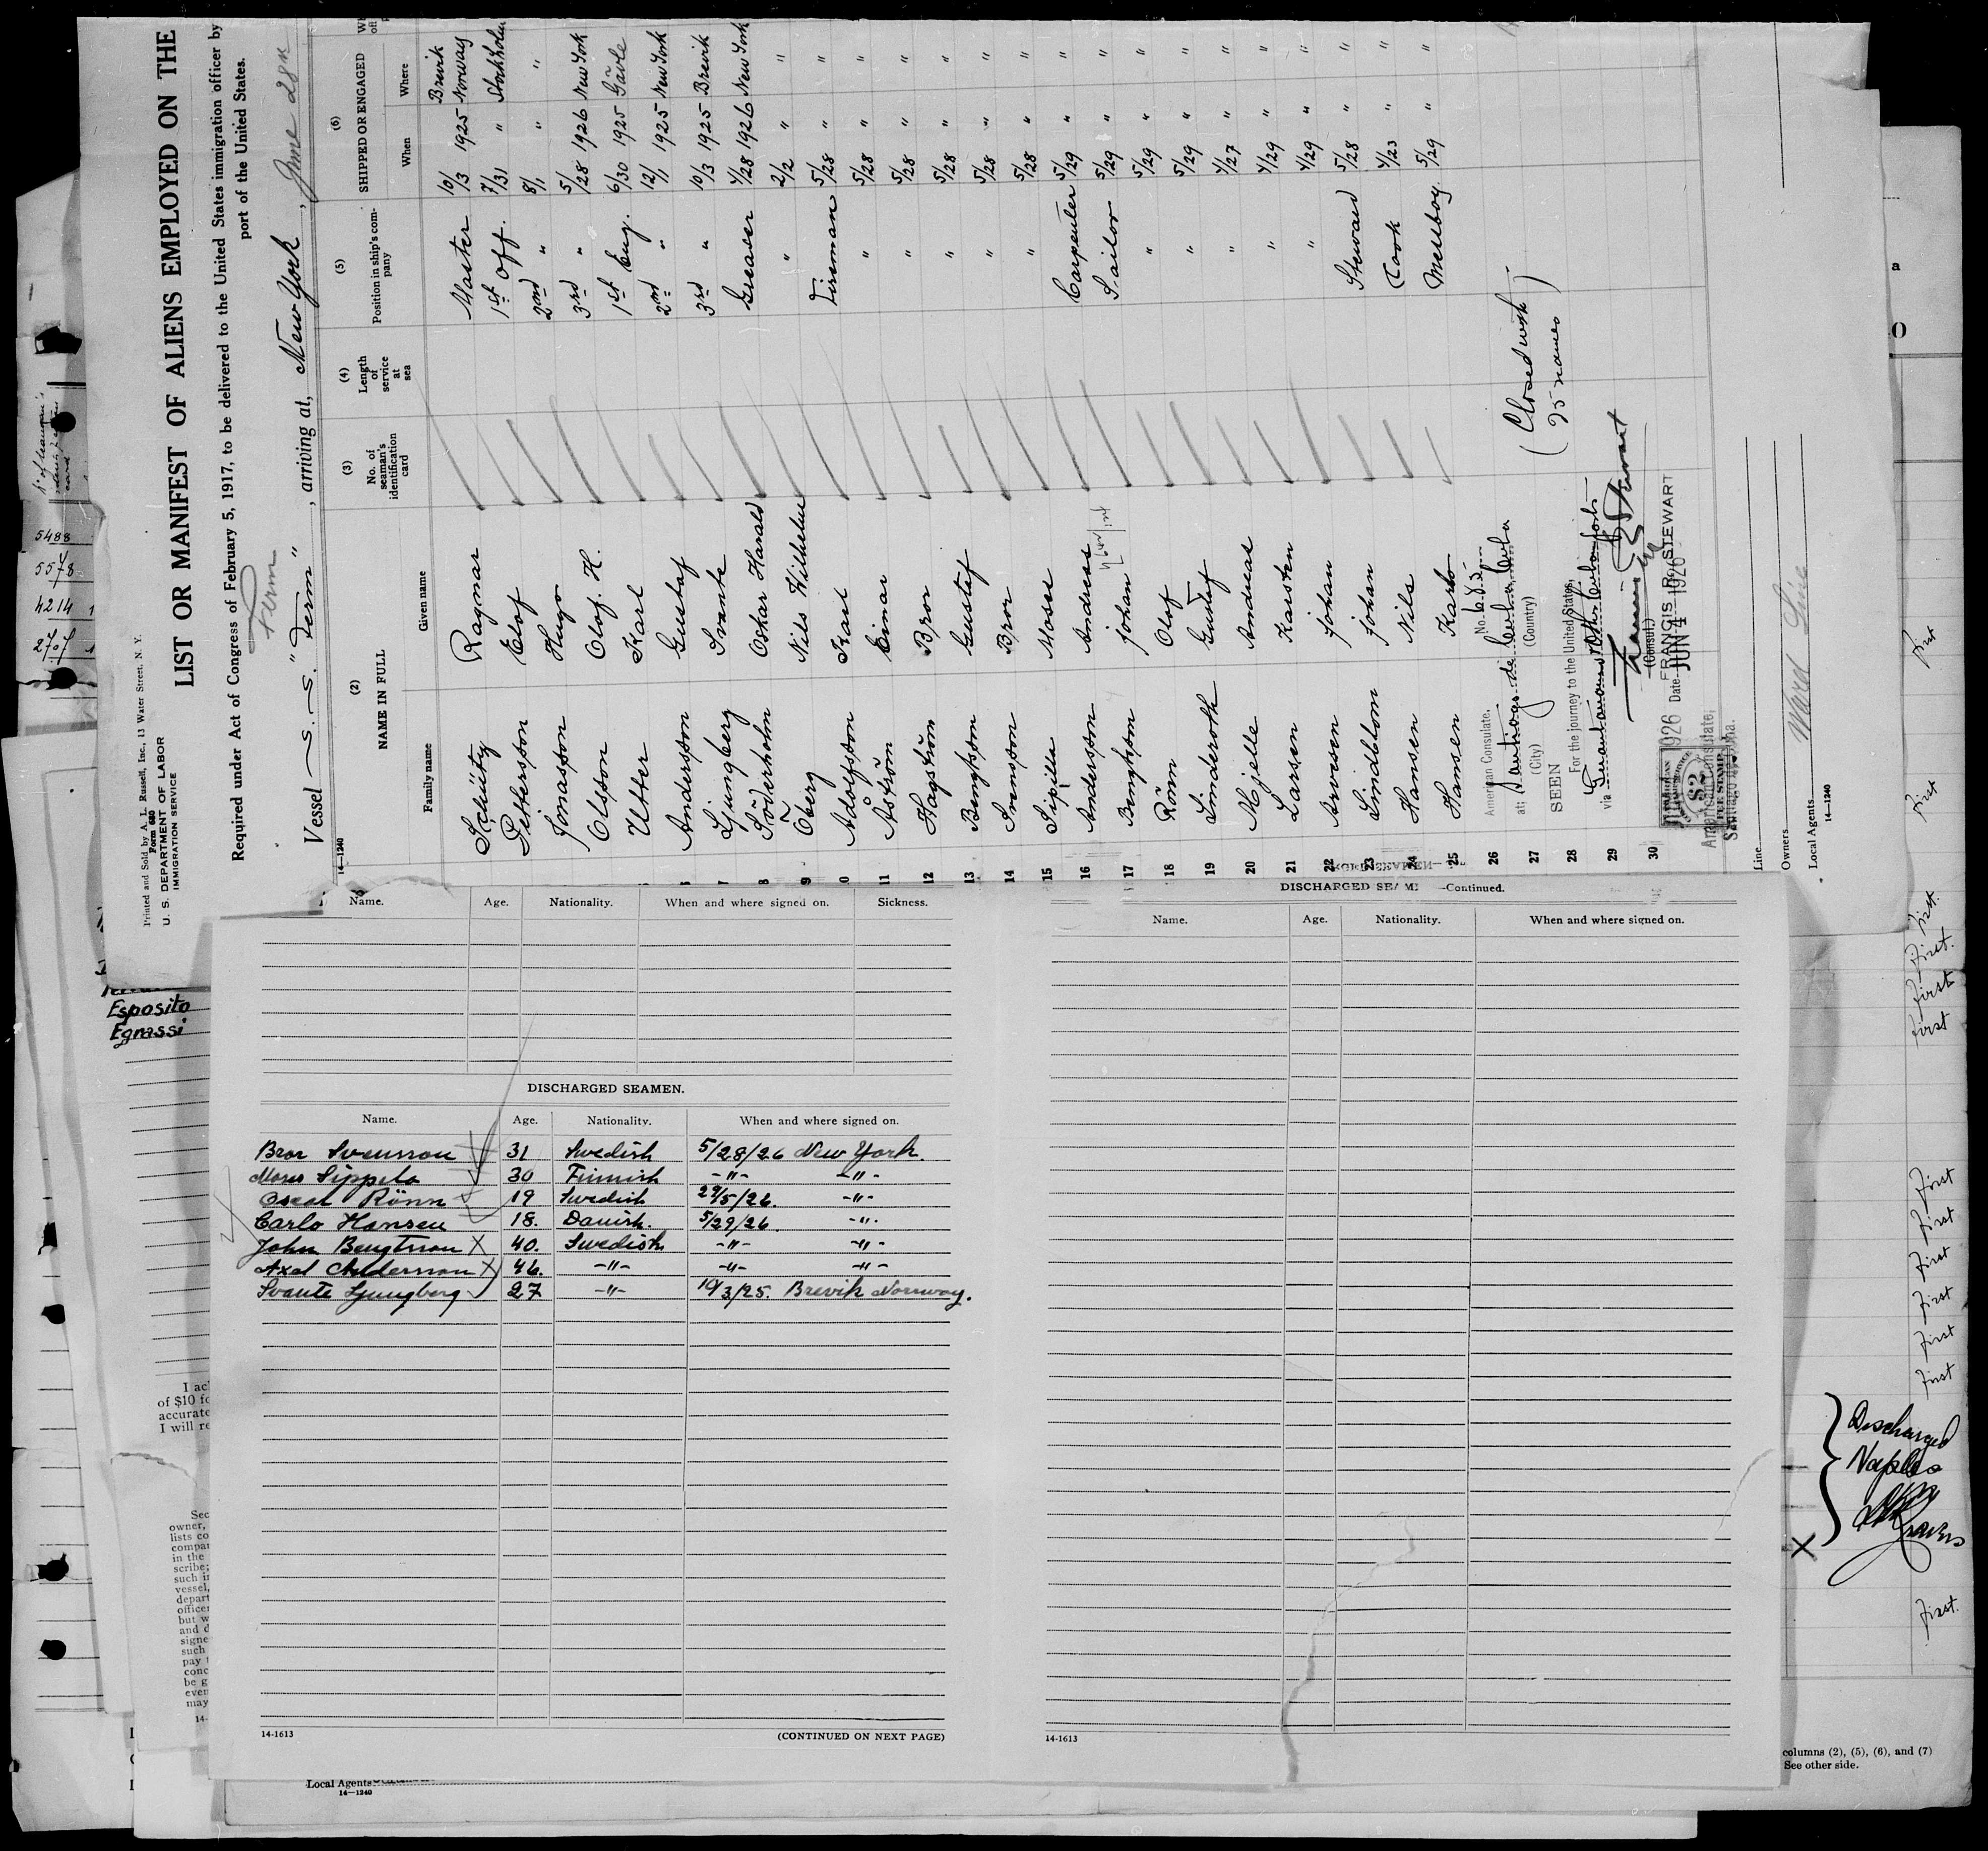 Printed and Sold by A. L. Russell, Inc., 13 Water Street, N. Y.
Form 680
U. S. DEPARTMENT OF LABOR
IMMIGRATION SERVICE
LIST OR MANIFEST OF ALIENS EMPLOYED ON THE
Required under Act of Congress of February 5, 1917, to be delivered to the United States immigration officer by
port of the United States.
Ferm
Vessel S. S. "Ferm", arriving at, New York, June 28th
14—1240
(2) (3) (4) (5) (6)
NAME IN FULL
No. of seaman's identification card
Length of service at sea
Position in ship's company
SHIPPED OR ENGAGED
Family name Given name When Where
Schütz Ragnar Master 10/3 1925 Brevik Norway
Pettersson Elof 1st Off. 7/31 " Stockholm
Jonasson Hugo 2nd " 8/1 " "
Olsson Olof. H. 3rd " 5/28 1926 New York
Utter Karl 1st Eng. 6/30 1925 Gävle
6 Andersson Gustaf 2nd " 12/1 1925 New York
7 Ljungberg Svante 3rd " 10/3 1925 Brevik
8 Söderholm Oskar Harald Greaser 4/28 1926 New York
9 Öberg Nils Wilhelm " 2/2 " "
10 Adolfsson Karl Fireman 5/28 " "
11 Åström Einar " 5/28 " "
12 Hagström Bror " 5/28 " "
13 Bengtsson Gustaf " 5/28 " "
14 Svensson Bror " 5/28 " "
15 Sipilä Moses " 5/28 " "
16 Andersson Andreas Carpenter 5/29 " "
17 Bengtsson Johan Sailor 5/29 " "
18 Rönn Olof " 5/29 " "
19 Linderoth Gustaf " 5/29 " "
20 Mjelle Andreas " 4/27 " "
21 Larsen Karsten " 4/29 " "
22 Arvesen Johan " 4/29 " "
23 Lindblom Johan Steward 5/28 " "
24 Hansen Nils Cook 4/23 " "
25 Hansen Karlo Messboy 5/29 " "
26
27
28
29
30
American Consulate, No. 685
at; Santiago de Cuba, Cuba
(City) (Country)
SEEN
For the journey to the United States,
via Guantanamo
(Closed with
25 names)
(Consul.)
FRANCIS R. STEWART
Date JUN 4 1926
American Consulate,
Santiago de Cuba.
$2
FEE STAMP
Line
Owners
Local Agents Ward Line
14—1240
No. of seaman's identification card
5488
5578
4214
2707
Esposito
Egrassi
Name. Age. Nationality. When and where signed on. Sickness.
DISCHARGED SEAMEN.
Name. Age. Nationality. When and where signed on.
Bror Svensson 31 Swedish 5/28/26 New York.
Moses Sippila 30 Finnish -"- -"-
Oscar Rönn 19 Swedish 29/5/26. -"-
Carlo Hansen 18. Danish. 5/29/26 -"-
John Bengtsson X 40. Swedish -"- -"-
Axel Andersson X 46. -"- -"- -"-
Svante Ljungberg 27 -"- 10/3/25. Brevik Norway.
14-1613 (CONTINUED ON NEXT PAGE)
DISCHARGED SEAMEN—Continued.
Name. Age. Nationality. When and where signed on.
14-1613
I ac
of $10 fo
accurate
I will re
Sec
owner,
lists co
compan
in the
scribe;
such in
vessel,
depart
officer
but w
and d
signe
such
pay
conc
be g
even
may
14-
Local Agents
14—1240
first
first
first.
first.
first
first
first
first
first
first
first
first
Discharged
Naples
X
first.
columns (2), (5), (6), and (7)
See other side.